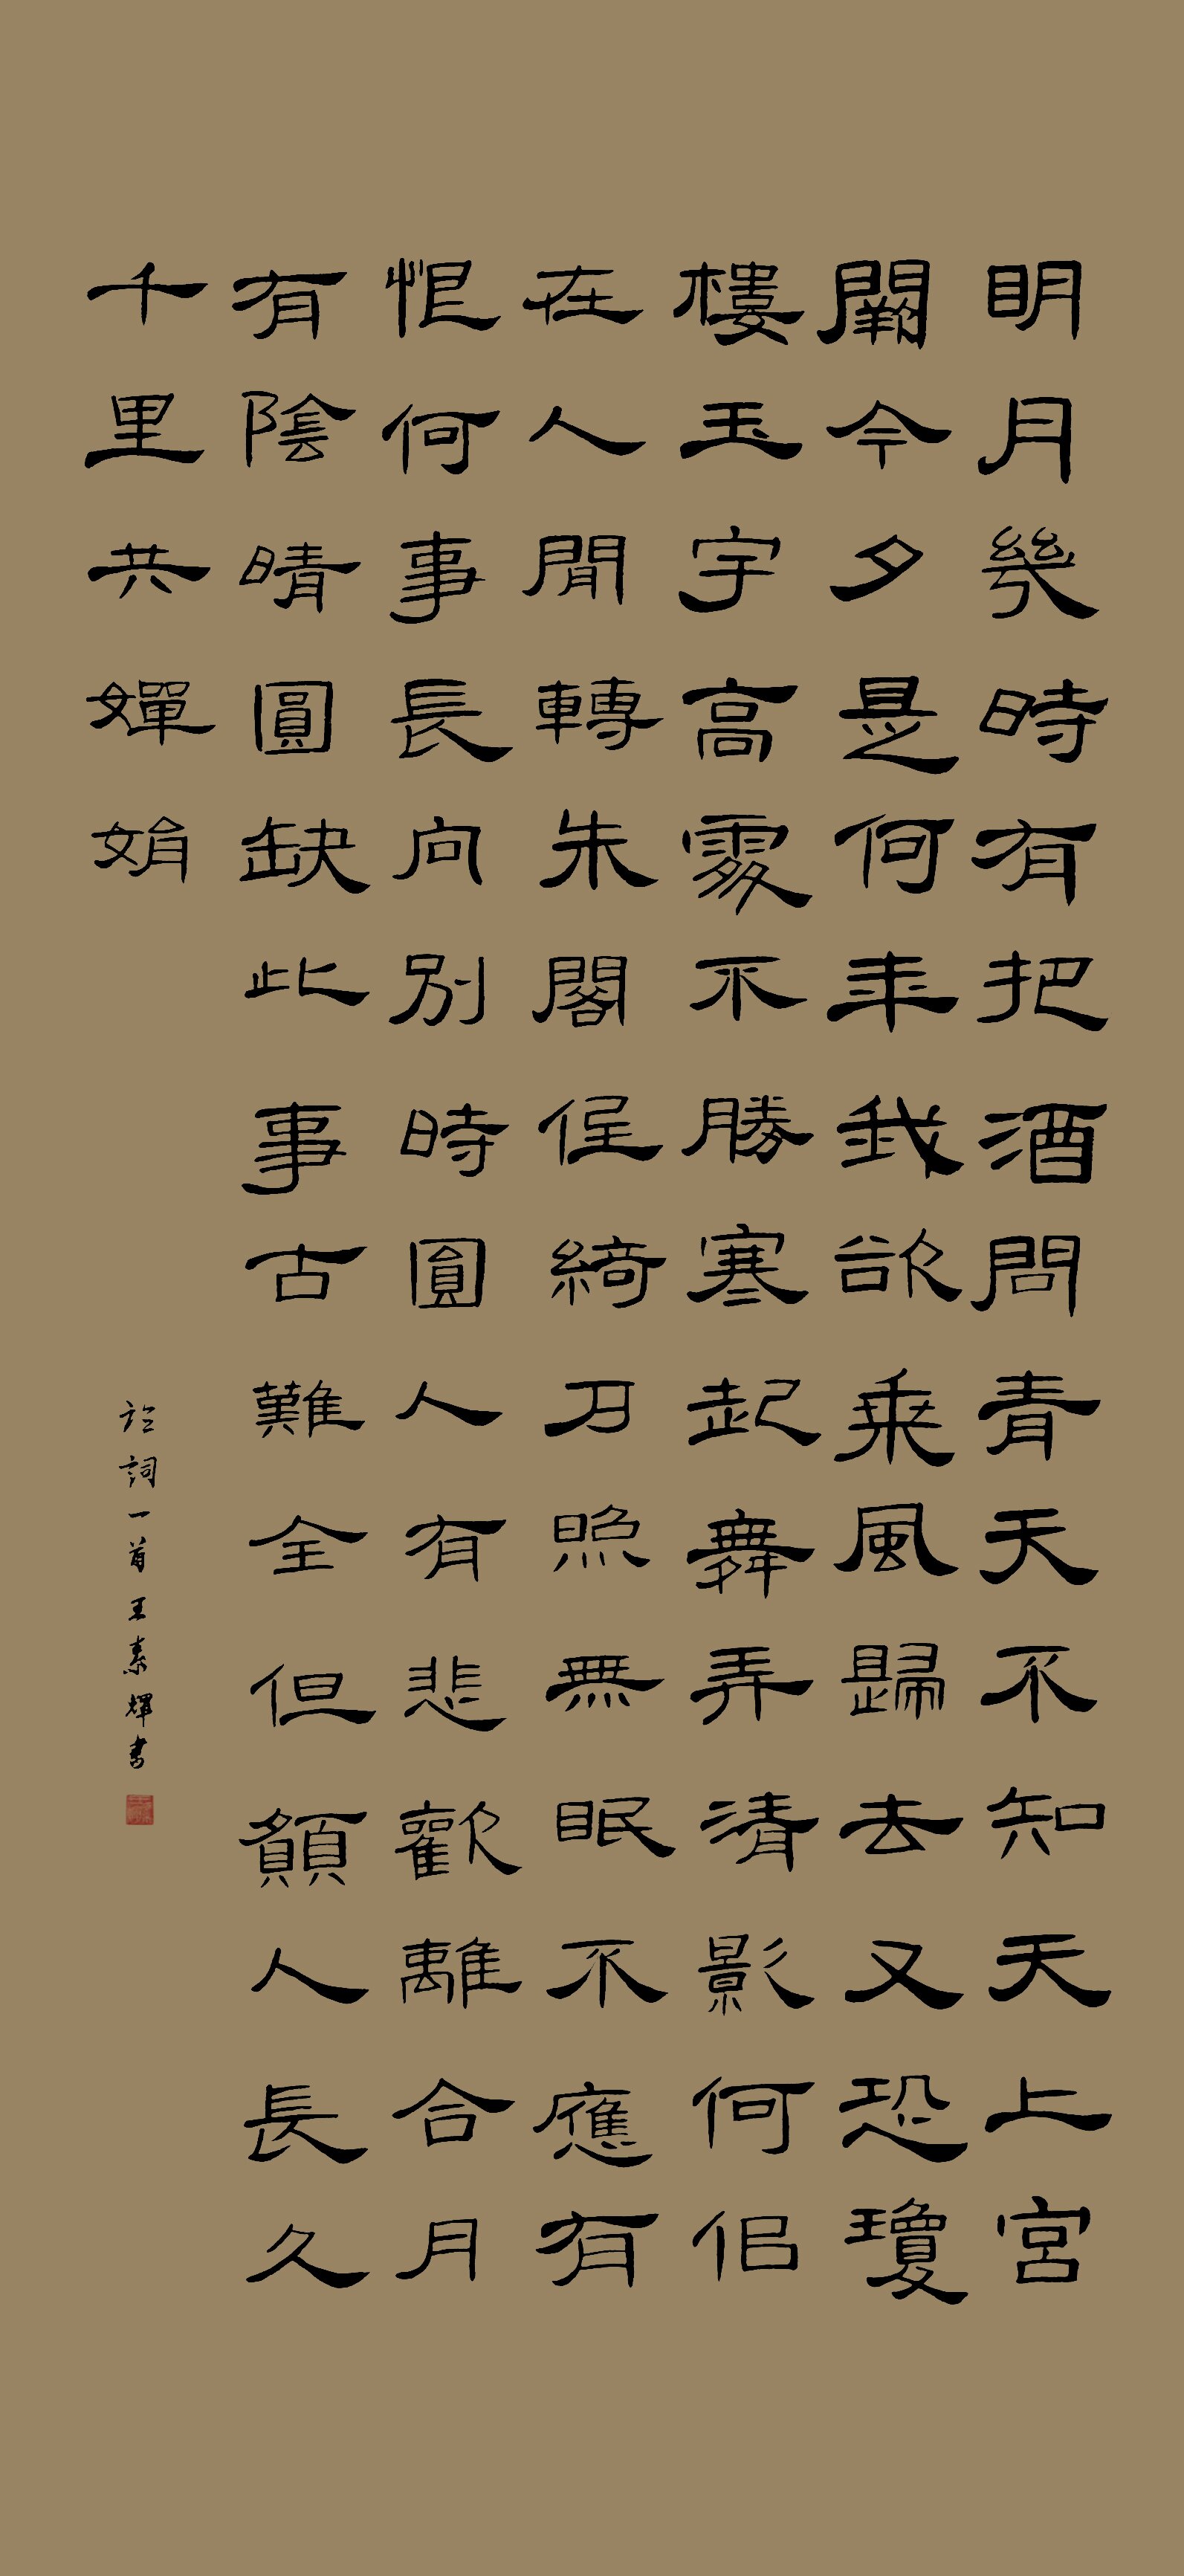 明月幾時有把酒問青天不知天上宮
闕今夕是何年我欲乘風歸去又恐瓊
樓玉宇高處不勝寒起舞弄清影何似
在人間轉朱閣低綺戶照無眠不應有
恨何事長向別時圓人有悲歡離合月
有陰晴圓缺此事古難全但願人長久
千里共嬋娟
詞一首王素輝書